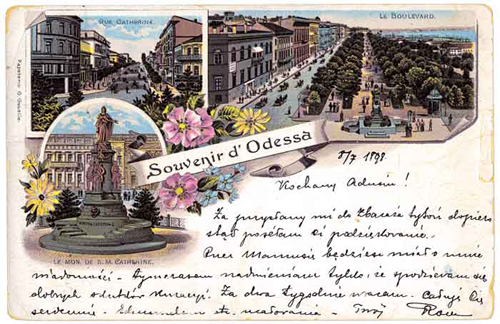 RUE CATHERINE.
LE BOULEVARD.
Souvenir d'Odessa
8/7 1898.
Kochany Adusiu!
Za przysłany mi do Zbaraża dopiero
stąd posyłam Ci podziękowanie.
Przez Mamusię będziesz miał o mnie
LE MON. DE S. M. CATHERINE.
wiadomości. Tymczasem nadmieniam tylko, że spodziewam się
dobrych skutków kuracyi. Za dwa tygodnie wracam. Całuję Cię
serdecznie. Twój